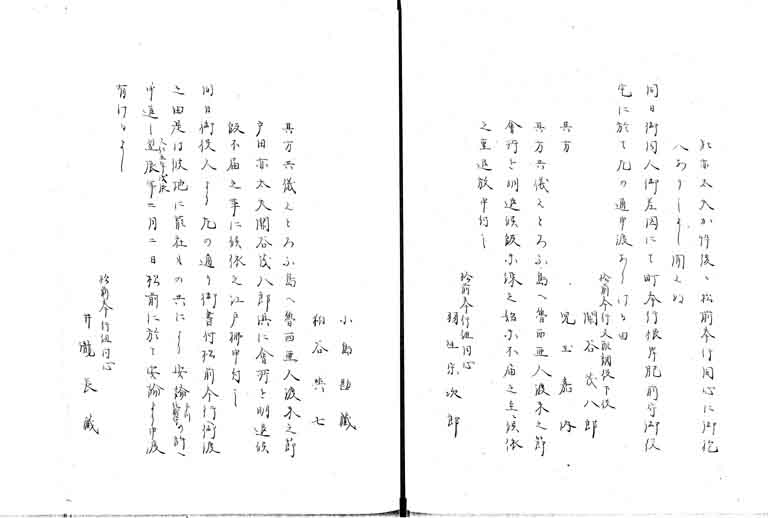 亦太夫か 松前奉行同心に御抱
入ありしよし聞えぬ
同日御同人御差図にて町奉行根岸肥前守御役
宅に於て左の通申渡ありける由
松前奉行支配調役下役
関谷茂八郎
児玉嘉内
其方
其方共儀ゑとろふ島へ魯西亜人渡来之節
會所を明退候段 始末不届之至ニ候依
之重追放申付之
松前奉行組同心
羽生宗次郎
小島勘蔵
粕谷與七
其方共儀ゑとろふ島へ魯西亜人渡来之節
戸田亦太夫関谷茂八郎共に會所を明退候
段不届之事に候依之江戸拂申付之
同日御役人より左の通り御書付松前奉行江御渡
之由是は彼地に罷在もの共により安論 の所へ
申送し翌辰年二月二日松前に於て安論より申渡
有けるよし
松前奉行組同心
井瀧長蔵